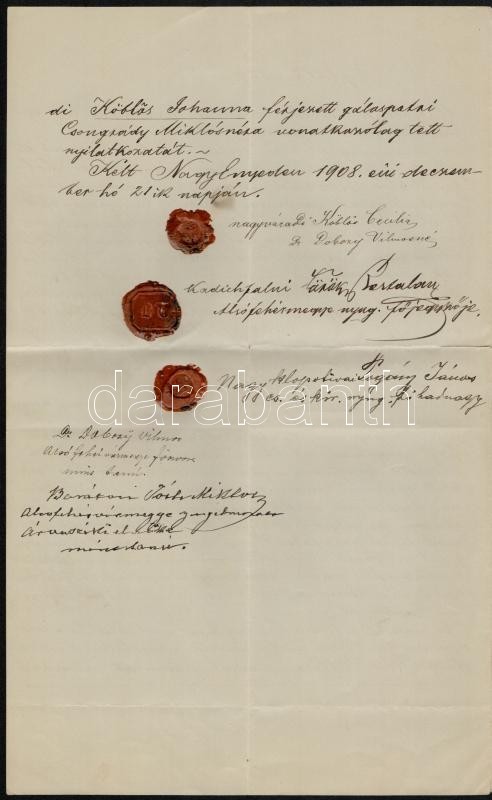 di Köblös Johanna férjezett gálaspatri
Csongrády Miklósnéra vonatkozólag tett
nyilatkozatát. ~
Kelt Nagyenyeden 1908. évi deczem-
ber hó 21ik napján.
nagyváradi Köblös Cecilia
Dr Dobozy Vilmosné
Kadichfalvi Török Bertalan
Alsófehérmegye nyug. főjegyzője.
Nagy Klopotivai János
cs. és kir. nyug. főhadnagy
darabanth
Dr. Dobozy Vilmos
Alsófehérvármegye főorvosa
mint tanú.
Baráthosi Tóth Miklós
Alsófehérvármegye
Árvaszéki
mint tanú.